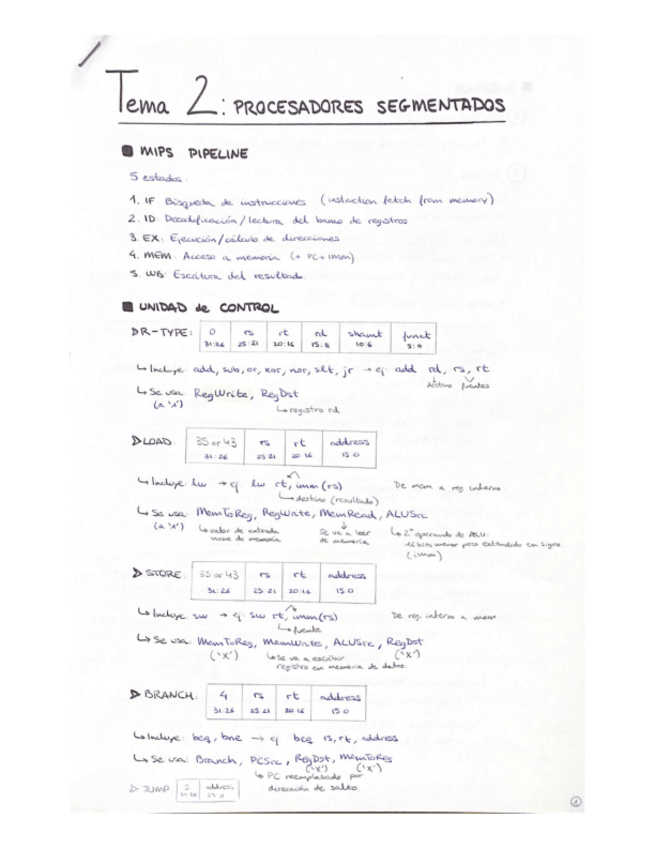 Tema 2: PROCESADORES SEGMENTADOS
MIPS PIPELINE
5 estados:
1. IF Búsqueda de instrucciones (instruction fetch from memory)
2. ID: Decodificación/lectura del banco de registros
3. EX: Ejecución/cálculo de direcciones
4. MEM: Acceso a memoria (+ PC+imm)
5. WB: Escritura del resultado.
UNIDAD de CONTROL
R-TYPE: 0 rs rt rd shamt funct
31:26 25:21 20:16 15:11 10:6 5:0
Incluye: add, sub, or, xor, nor, slt, jr → ej: add rd, rs, rt
destino fuentes
Se usa: RegWrite, RegDst
(a '1') registro rd
LOAD: 35 or 43 rs rt address
31:26 25:21 20:16 15:0
Incluye: lw → ej: lw rt, imm(rs) De mem a reg interno
destino (resultado)
Se usa: MemToReg, RegWrite, MemRead, ALUSrc
(a '1') valor de entrada viene de memoria Se va a leer de memoria 2º operando de ALU:
16 bits menor peso extendido en signo
(imm)
STORE: 35 or 43 rs rt address
31:26 25:21 20:16 15:0
Incluye: sw → ej: sw rt, imm(rs) De reg. interno a mem
fuente
Se usa: MemToReg, MemWrite, ALUSrc, RegDst
('X') Se va a escribir ('X')
registro en memoria de datos.
BRANCH: 4 rs rt address
31:26 25:21 20:16 15:0
Incluye: beq, bne → ej beq rs, rt, address
Se usa: Branch, PCSrc, RegDst, MemToReg
('X') ('X')
PC reemplazado por
dirección de salto.
JUMP 2 address
31:26 25:0
1